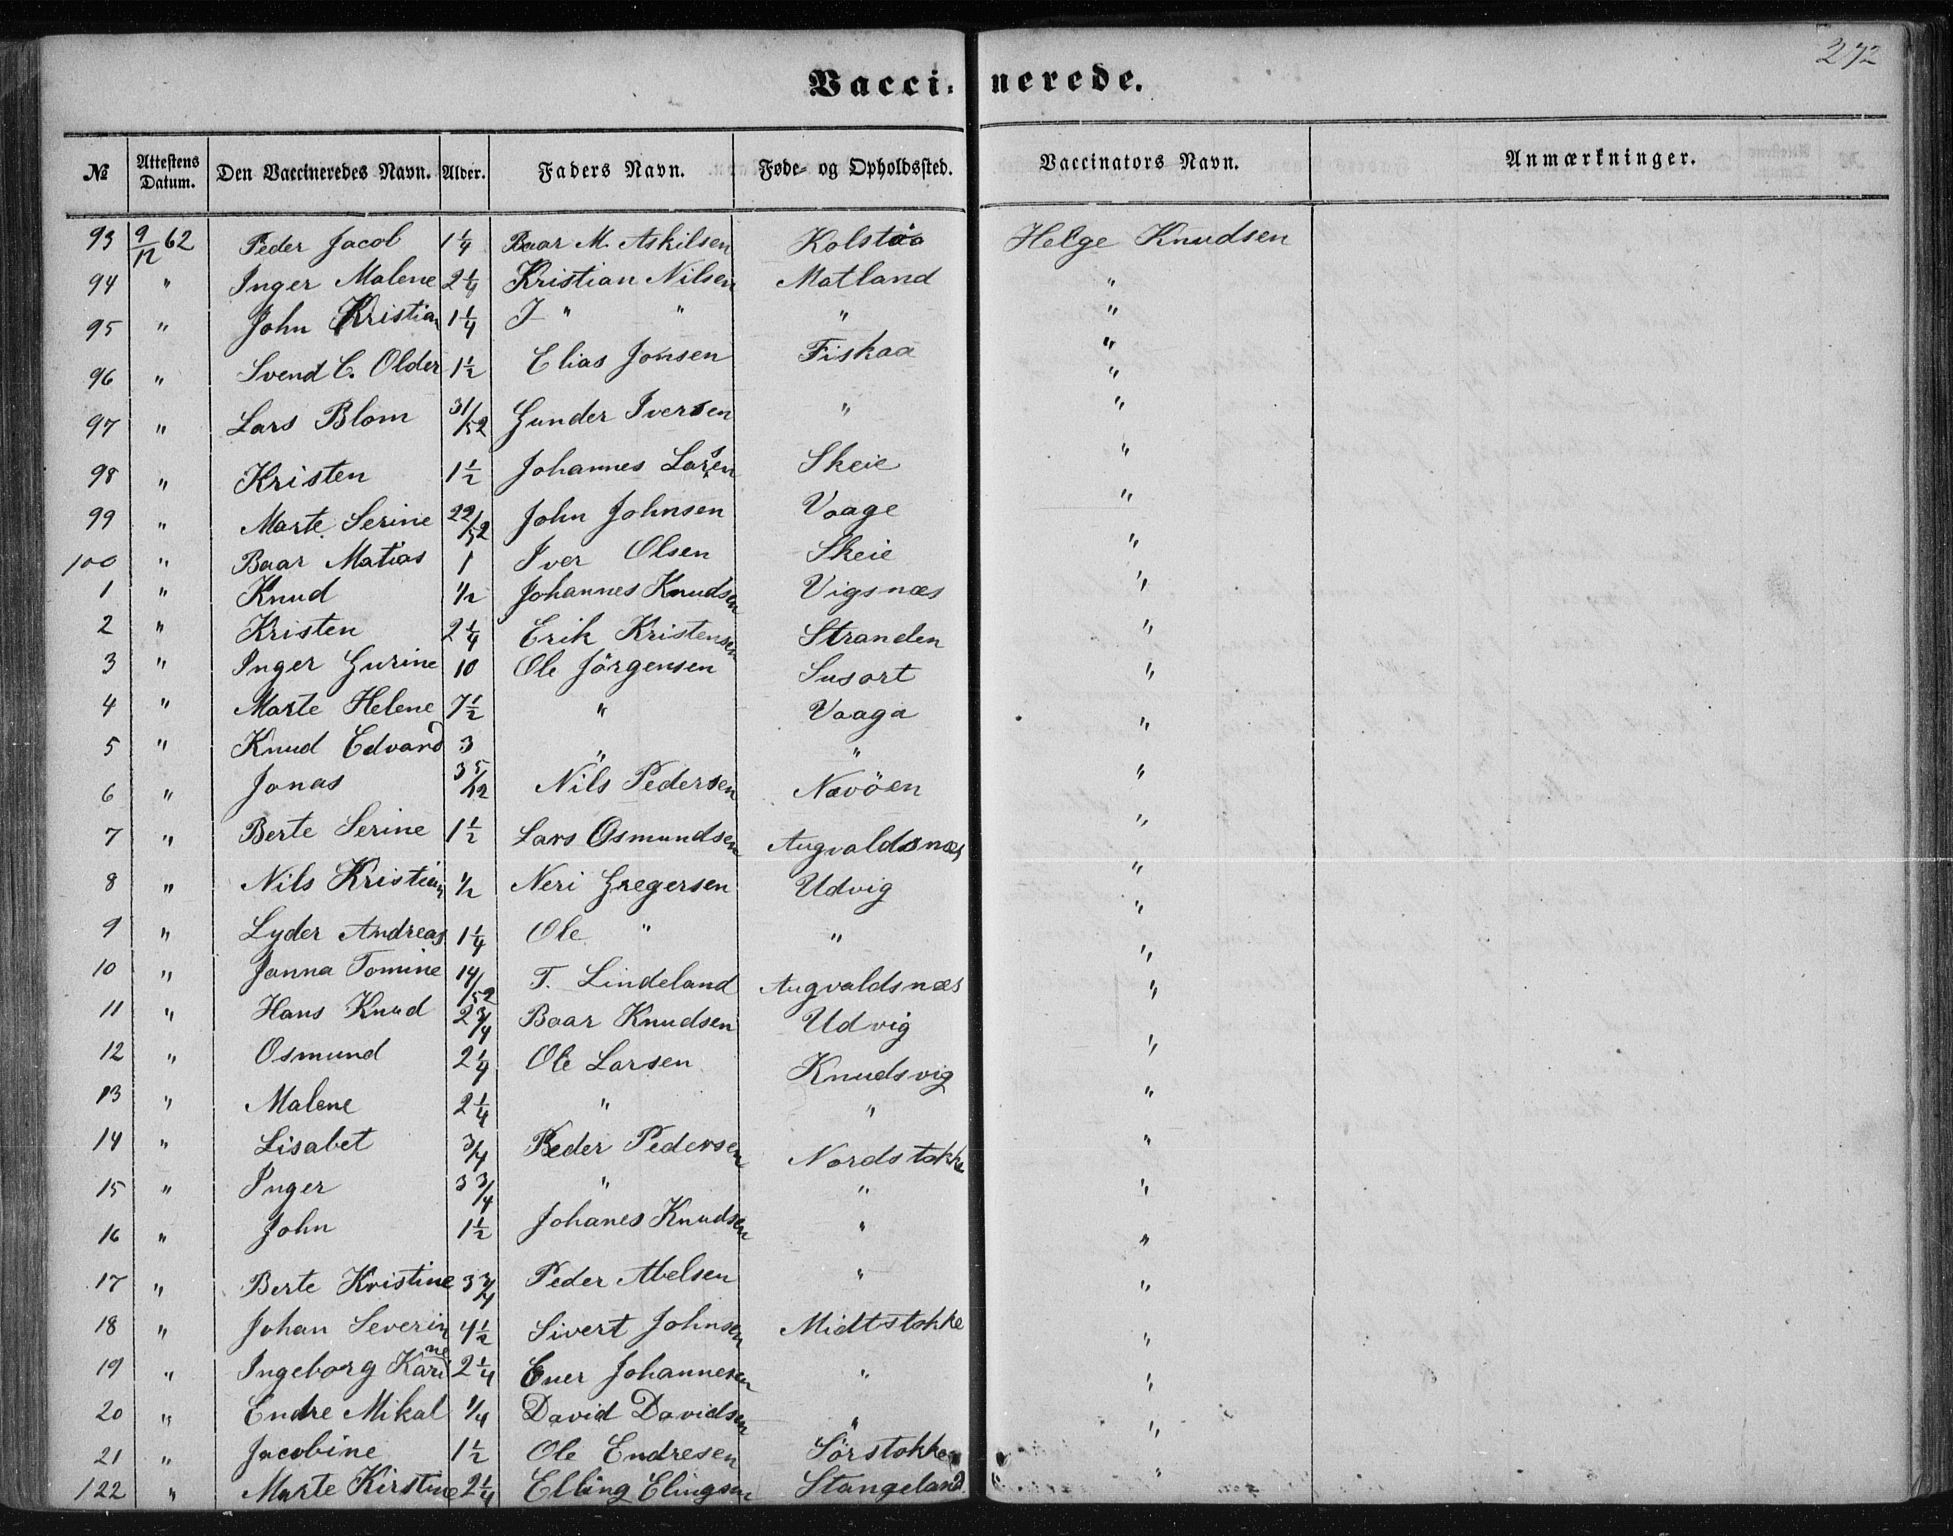 272
Vaccinerede.
№ Attestens Datum. Den Vaccineredes Navn. Alder. Faders Navn. Føde- og Opholdssted. Vaccinators Navn. Anmærkninger.
93 9/12 62 Peder Jacob 1 1/4 Baar M. Askilsen Kolstøo Helge Knudsen
94 " Inger Malene 2 1/4 Kristian Nilsen Matland "
95 " John Kristian 1 1/4 I " " " "
96 " Svend C. Older 1 1/2 Elias Jonsen Fiskaa "
97 " Lars Blom 31/52 Gunder Iversen " "
98 " Kristen 1 1/2 Johannes Larsen Skeie "
99 " Marte Serine 22/52 John Johnsen Vaage "
100 " Baar Matias 1 Iver Olsen Skeie "
1 " Knud 1/2 Johannes Knudsen Vigsnæs "
2 " Kristen 2 1/4 Erik Kristensen Stranden "
3 " Inger Gurine 10 Ole Jörgensen Susort "
4 " Marte Helene 7 1/2 " Vaaga "
5 " Knud Edvard 3 " " "
6 " Jonas 3 5/12 Nils Pedersen Nævöen "
7 " Berte Serine 1 1/2 Lars Osmundsen Augvaldsnæs "
8 " Nils Kristian 1/2 Neri Gregersen Udvig "
9 " Lyder Andreas 1 1/4 Ole " " "
10 " Janna Tomine 14/52 T. Lindeland Augvaldsnæs "
11 " Hans Knud 2 3/4 Baar Knudsen Udvig "
12 " Osmund 2 1/4 Ole Larsen Knudsvig "
13 " Malene 2 1/4 " " "
14 " Lisabet 3/4 Peder Pedersen Nordstokke "
15 " Inger 3 3/4 " " "
16 " John 1 1/2 Johanes Knudsen " "
17 " Berte Kristine 3 3/4 Peder Abelsen " "
18 " Johan Severin 4 1/2 Sivert Johnsen Midtstokke "
19 " Ingeborg Karine 2 1/4 Ener Johannesen " "
20 " Endre Mikal 1/4 David Davidsen " "
21 " Jacobine 1 1/2 Ole Endresen Sörstokke "
122 " Marte Kirstine 2 1/4 Elling Elingsen Stangeland "